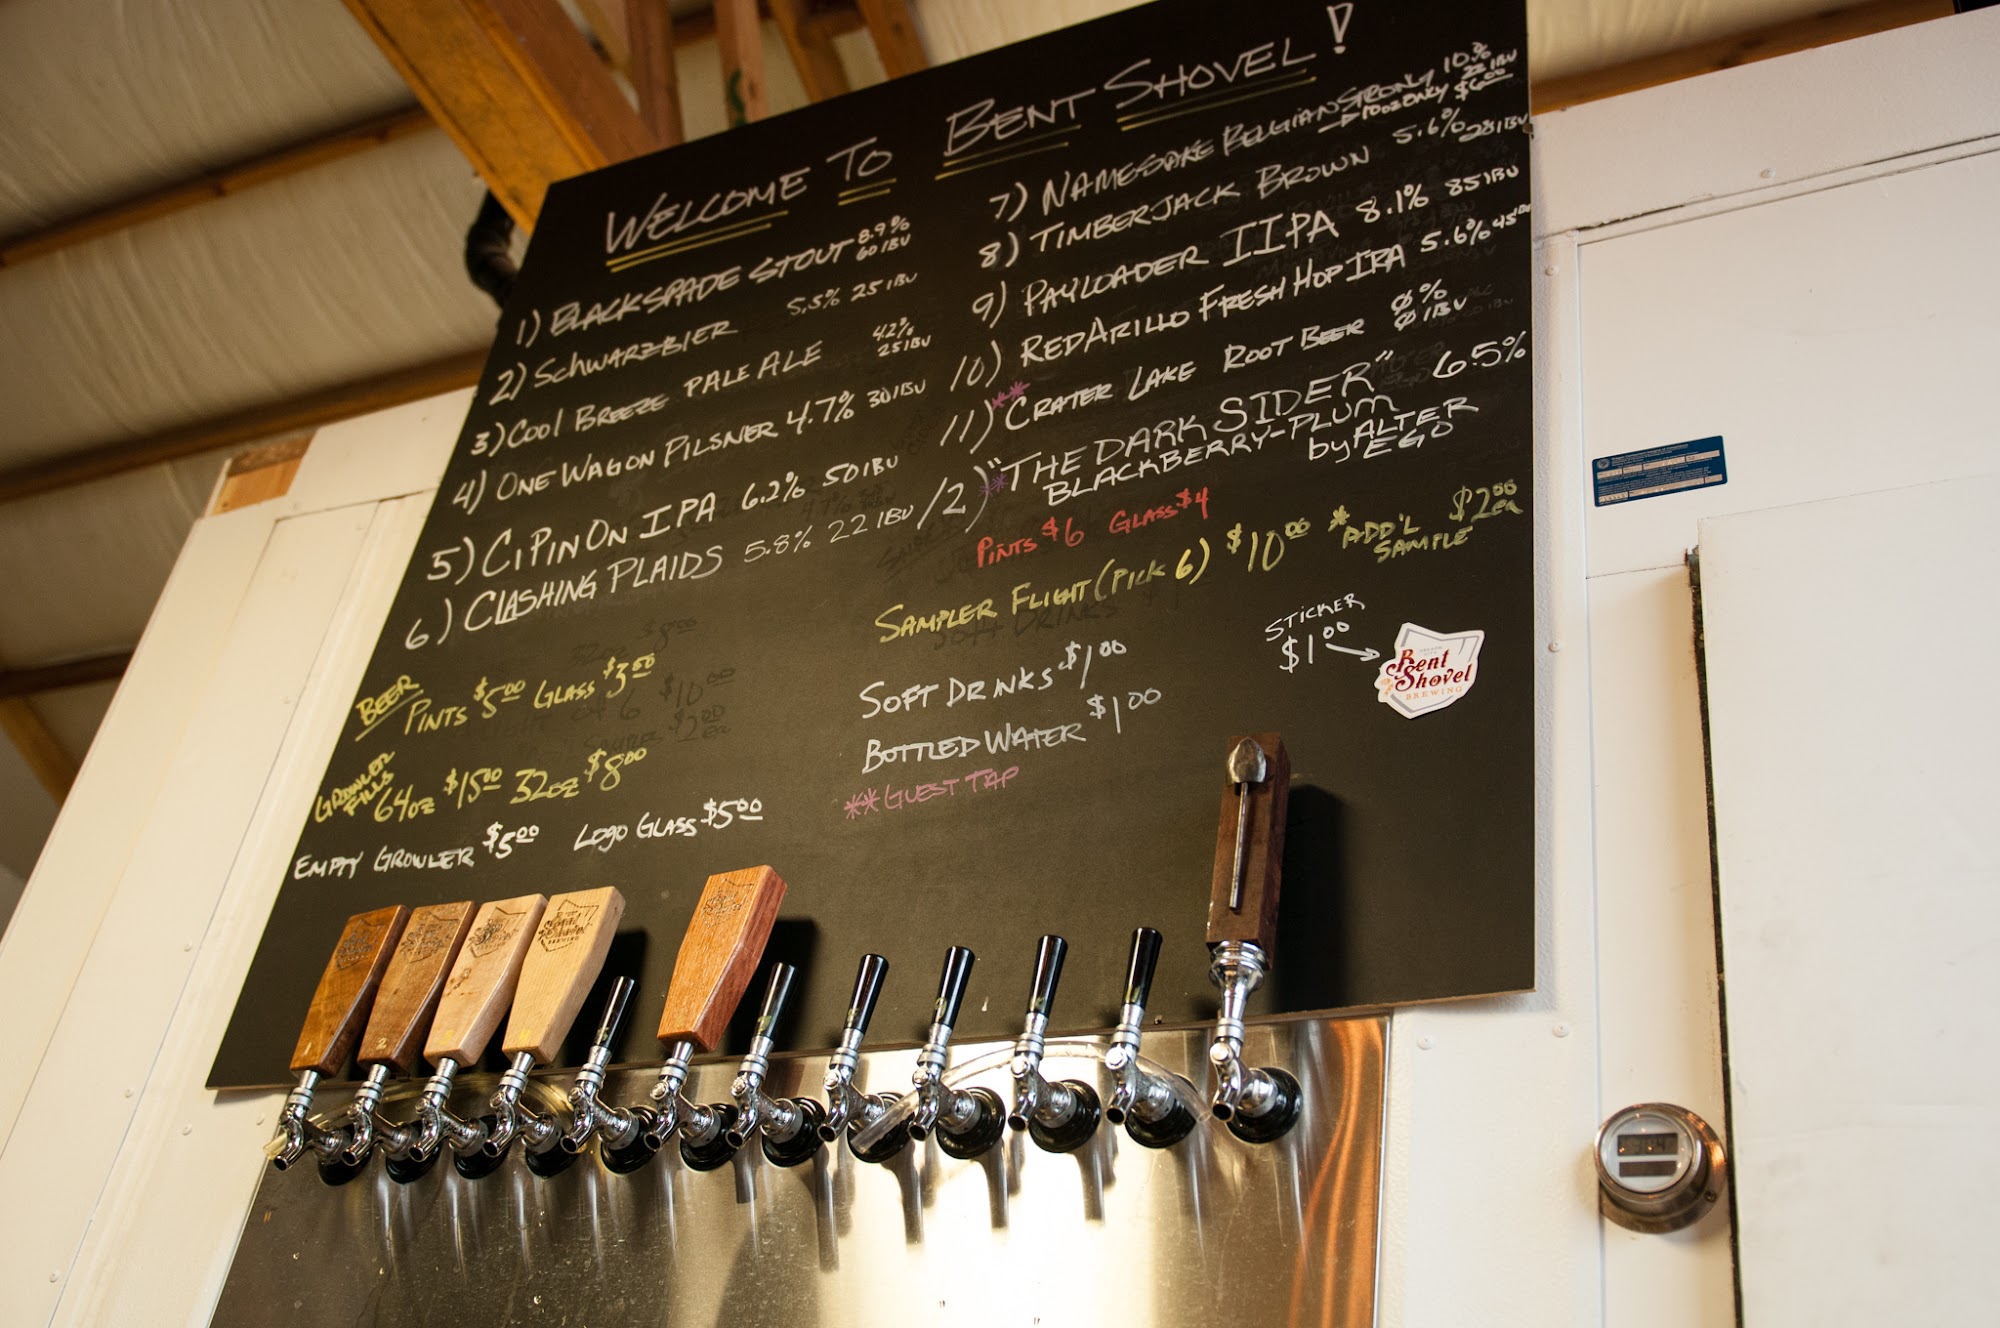 WELCOME TO BENT SHOVEL!
1) BLACKSPADE STOUT 8.9% 60 IBU
2) SCHWARZBIER 5.5% 25 IBU
3) COOL BREEZE PALE ALE 4.2% 25 IBU
4) ONE WAGON PILSNER 4.7% 30 IBU
5) CIPINON IPA 6.2% 50 IBU
6) CLASHING PLAIDS 5.8% 22 IBU
BEER
PINTS $5.00 GLASS $3.50
GROWLER FILLS
64OZ $15.00 32OZ $8.00
EMPTY GROWLER $5.00 LOGO GLASS $5.00
7) NAMESAKE BELGIAN STRONG 10.2% 22 IBU
→ 10OZ ONLY $6.00
8) TIMBERJACK BROWN 5.6% 28 IBU
9) PAYLOADER IIPA 8.1% 85 IBU
10) REDARILLO FRESH HOP IRA 5.6% 45 IBU
11) ** CRATER LAKE ROOT BEER 0% 0 IBU
12) ** "THE DARK SIDER" 6.5%
BLACKBERRY-PLUM
by ALTER EGO
PINTS $6 GLASS $4
SAMPLER FLIGHT (PICK 6) $10.00 * ADD'L SAMPLE $2.00 ea
SOFT DRINKS $1.00
BOTTLED WATER $1.00
** GUEST TAP
STICKER
$1.00 →
Bent
Shovel
BREWING
1
2